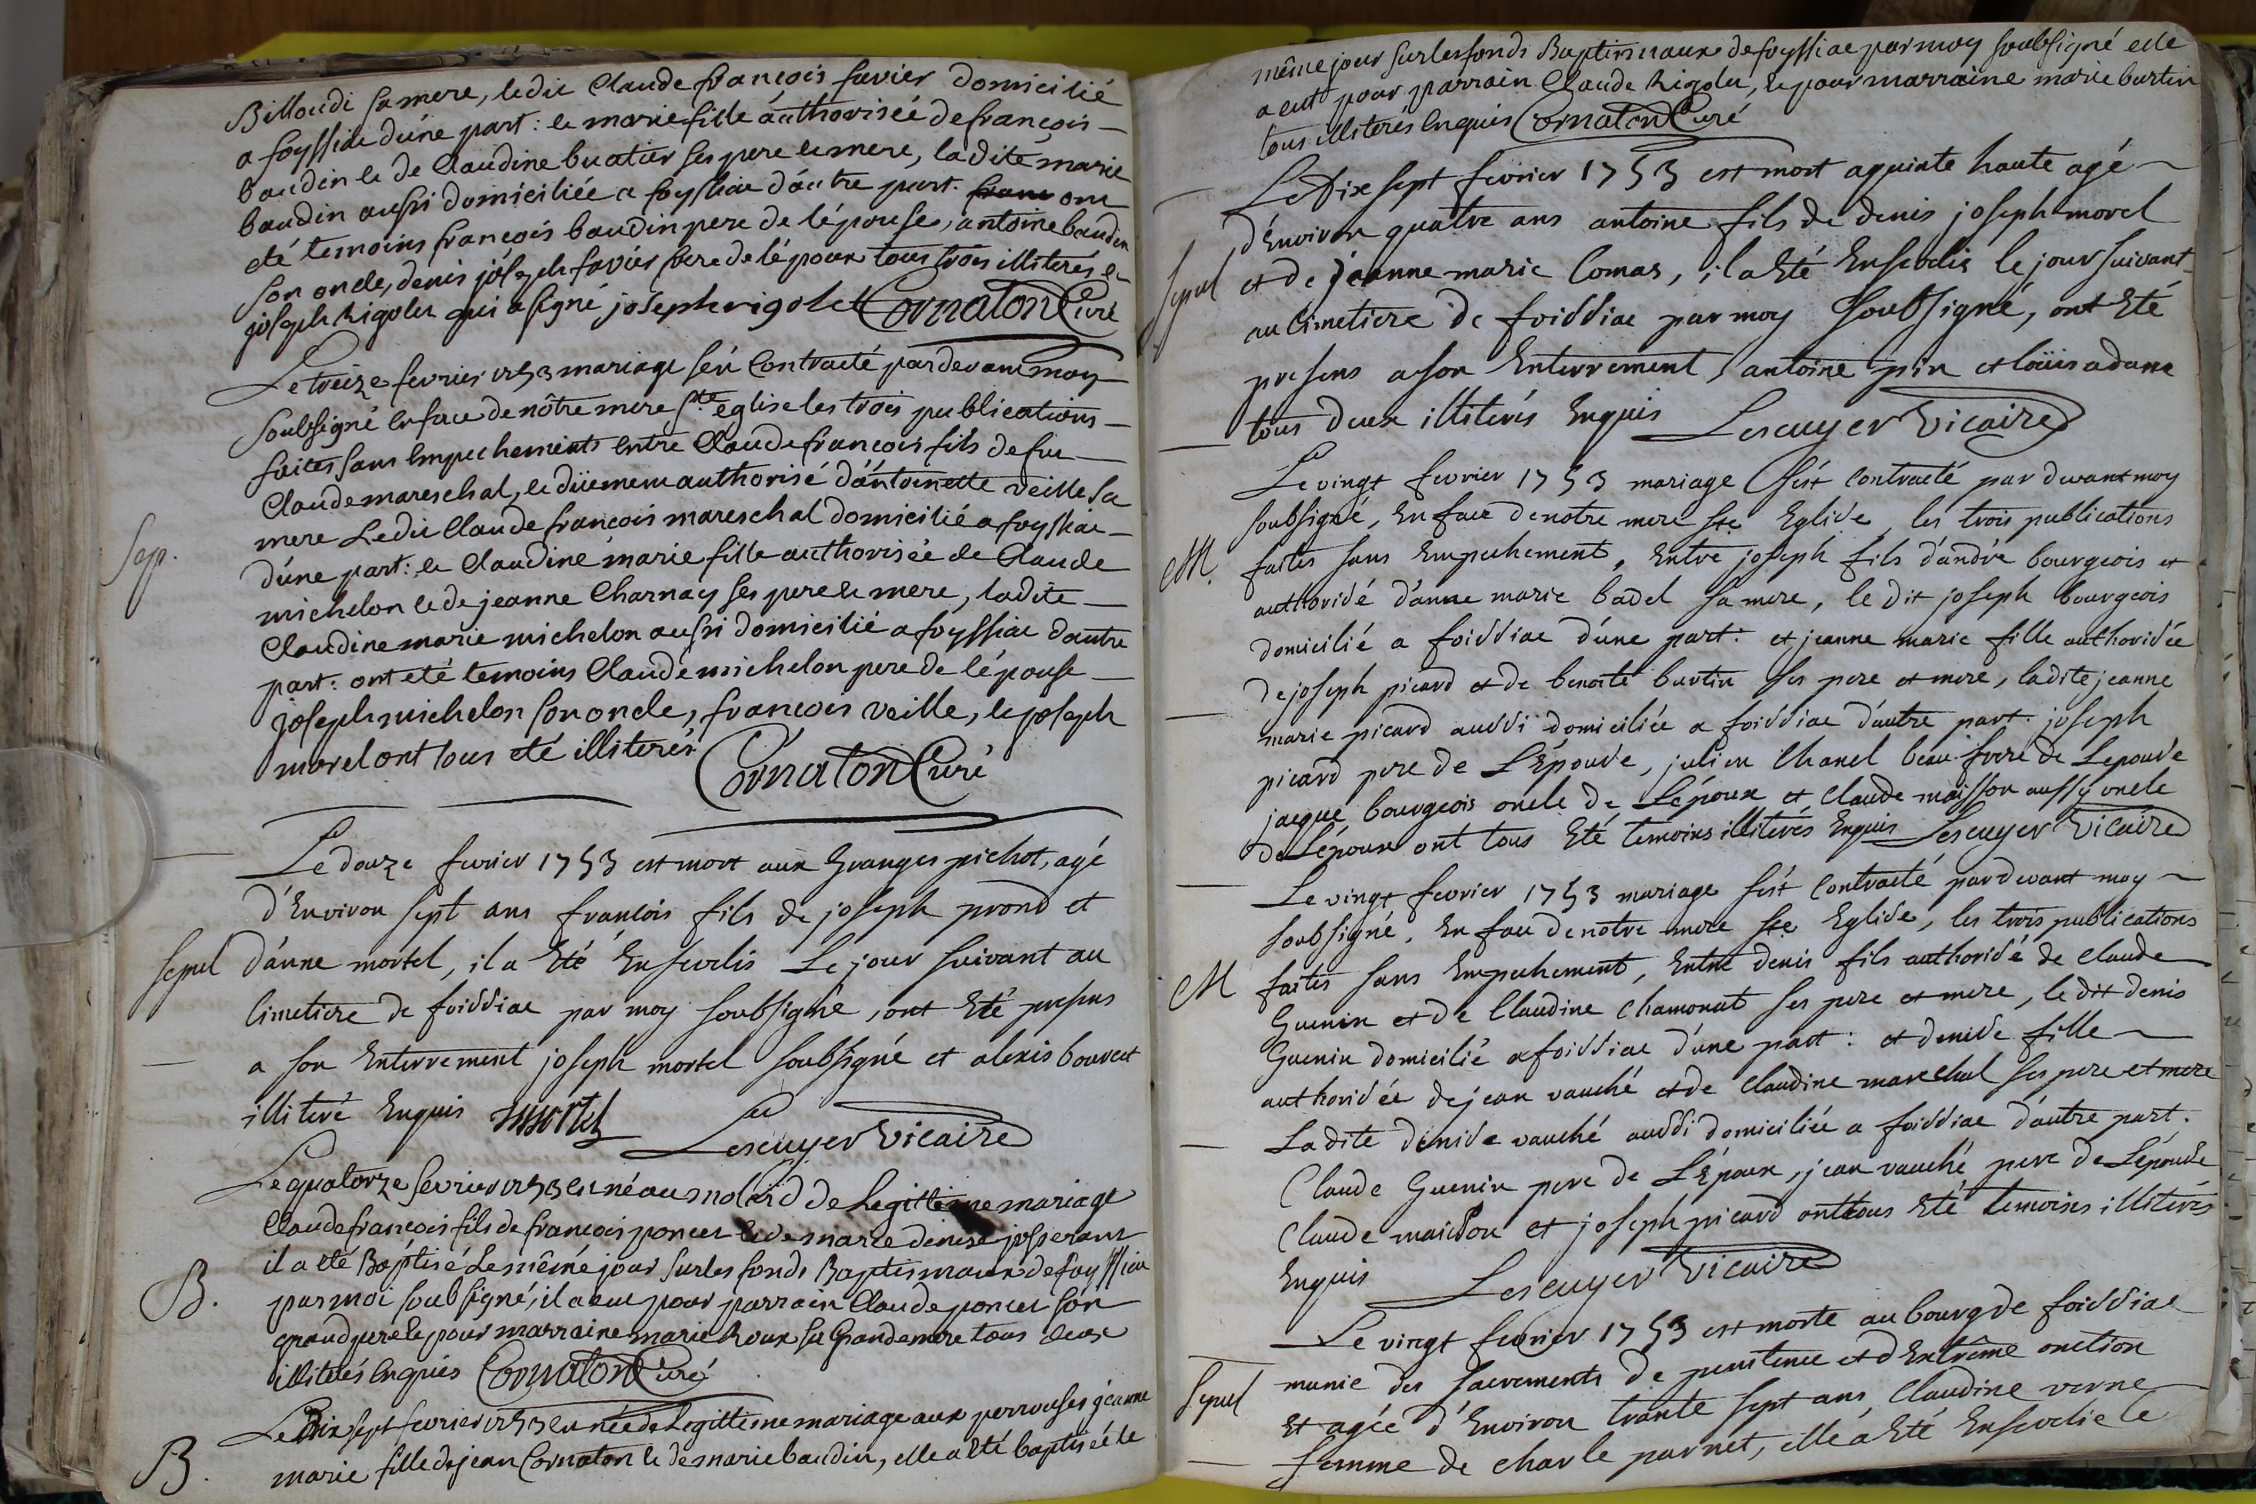 Billoudi sa mere, le dit Claude françois favier domicilié
a foyssiac d'une part: et marie fille authorisée de françois
baudin et de Claudine buatier ses pere et mere, la dite marie
baudin aussi domiciliée a foyssiac d'autre part. ont
eté temoins françois baudin pere de l'épouse, antoine baudin
son oncle, denis joseph favier frere de lépoux tous trois illiterés et
joseph Rigolet qui a signé joseph rigolet Cornaton Curé
Le treize fevrier 1753 mariage s'est Contracté par devant moy
soubsigné en face de nôtre mere Ste église les trois publications
faites sans empechements entre Claude françois fils de feu
Claude mareschal, et düement authorisé d'antoinette veille sa
mere Le dit Claude françois mareschal domicilié a foyssiac
Sep.
d'une part: et Claudine marie fille authorisée de Claude
michelon et de jeanne Charnay ses pere et mere, la dite
Claudine marie michelon aussi domicilié a foyssiac d'autre
part: ont eté temoins Claude michelon pere de l'épouse
joseph michelon son oncle, françois veille, et joseph
morel ont tous eté illiterés Cornaton Curé
Le douze fevrier 1753 est mort aux Granges pichot, agé
d'Environ sept ans françois fils de joseph prond et
sepul d'anne mortel, il a Eté Ensevelis Le jour suivant au
Cimetiere de foissiac par moy soubsigné, ont Eté presens
a son Enterrement joseph mortel soubsigné et alexis bouvet
illiteré Enquis mortel Lescuyer Vicaire
Le quatorze fevrier 1753 est né au molard de Legitime mariage
Claude françois fils de françois poncet et de marie denise josserant
il a eté Baptisé le même jour sur les fonds Baptismaux de foyssiac
B. par moi soubsigné, il a eut pour parrain Claude poncet son
grand pere et pour marraine marie Roux sa Grandemere tous deux
illiterés enquis Cornaton Curé
Le Dix sept fevrier 1753 est née de Legitime mariage aux perrouses jeanne
B. marie fille de jean Cornaton et de marie baudin, elle a eté baptisée le
même jour sur les fonds Baptismaux de foyssiac par moy soubsigné elle
a eut pour parrain Claude Rigolet, et pour marraine marie burtin
tous illiterés enquis Cornaton Curé
Le dix sept fevrier 1753 est mort a haute agé
d'Environ quatre ans antoine fils de denis joseph morel
sepul et de jeanne marie Comas, il a Eté Ensevelis le jour suivant
au Cimetiere de foissiac par moy soubsigné, ont Eté
presens a son Enterrement antoine pin et loüis adam
tous deux illiterés Enquis Lescuyer Vicaire
Le vingt fevrier 1753 mariage s'est Contracté par devant moy
soubsigné, En face de notre mere Ste Eglise, les trois publications
M. faites sans Empechement, Entre joseph fils d'andré bourgeois et
authorisé d'anne marie badel sa mere, le dit joseph bourgeois
domicilié a foissiac d'une part: et jeanne marie fille authorisée
de joseph picard et de benoite burtin ses pere et mere, la dite jeanne
marie picard aussi domiciliée a foissiac d'autre part. joseph
picard pere de L'Epouse, julien Chanel beau-frere de Lepouse
jacque bourgeois oncle de Lépoux et Claude maisson aussy oncle
de Lépoux ont tous Eté temoins illiterés Enquis Lescuyer Vicaire
Le vingt fevrier 1753 mariage s'est Contracté par devant moy
soubsigné. En face de notre mere Ste Eglise, les trois publications
M faites sans Empechement, Entre denis fils authorisé de Claude
Guenin et de Claudine Chamonat ses pere et mere, le dit denis
Guenin domicilié a foissiac d'une part: et denise fille
authorisée de jean vauché et de Claudine marechal ses pere et mere
La dite denise vauché aussi domiciliée a foissiac d'autre part.
Claude Guenin pere de L'Epoux, jean vauché pere de L'épouse
Claude maisson et joseph picard ont tous Eté temoins illiterés
Enquis Lescuyer Vicaire
Le vingt fevrier 1753 est morte au bourg de foissiac
munie des sacrements de penitence et d'Extrême onction
Sepul Et agée d'Environ trante sept ans, Claudine verne
femme de charle parnet, elle a Eté Ensevelie le